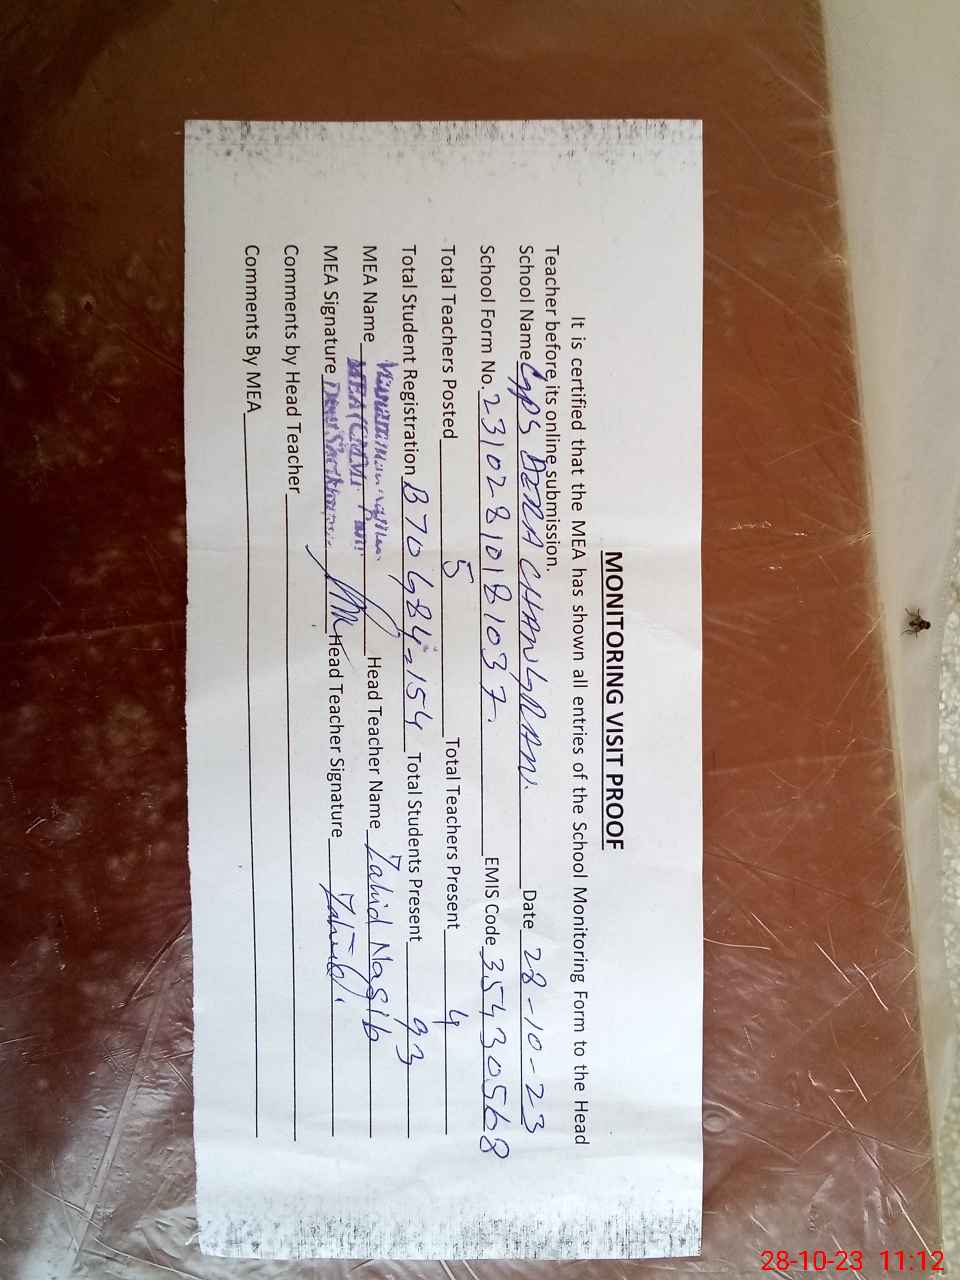 MONITORING VISIT PROOF
It is certified that the MEA has shown all entries of the School Monitoring Form to the Head
Teacher before its online submission.
School Name GPS DERA CHANGRAN. Date 28-10-23
School Form No. 23102810181037. EMIS Code 35430568
Total Teachers Posted 5 Total Teachers Present 4
Total Student Registration B70G84=154 Total Students Present 93
MEA Name Head Teacher Name Zahid Nasib
MEA Signature Head Teacher Signature Zahid
Comments by Head Teacher
Comments By MEA
28-10-23 11:12